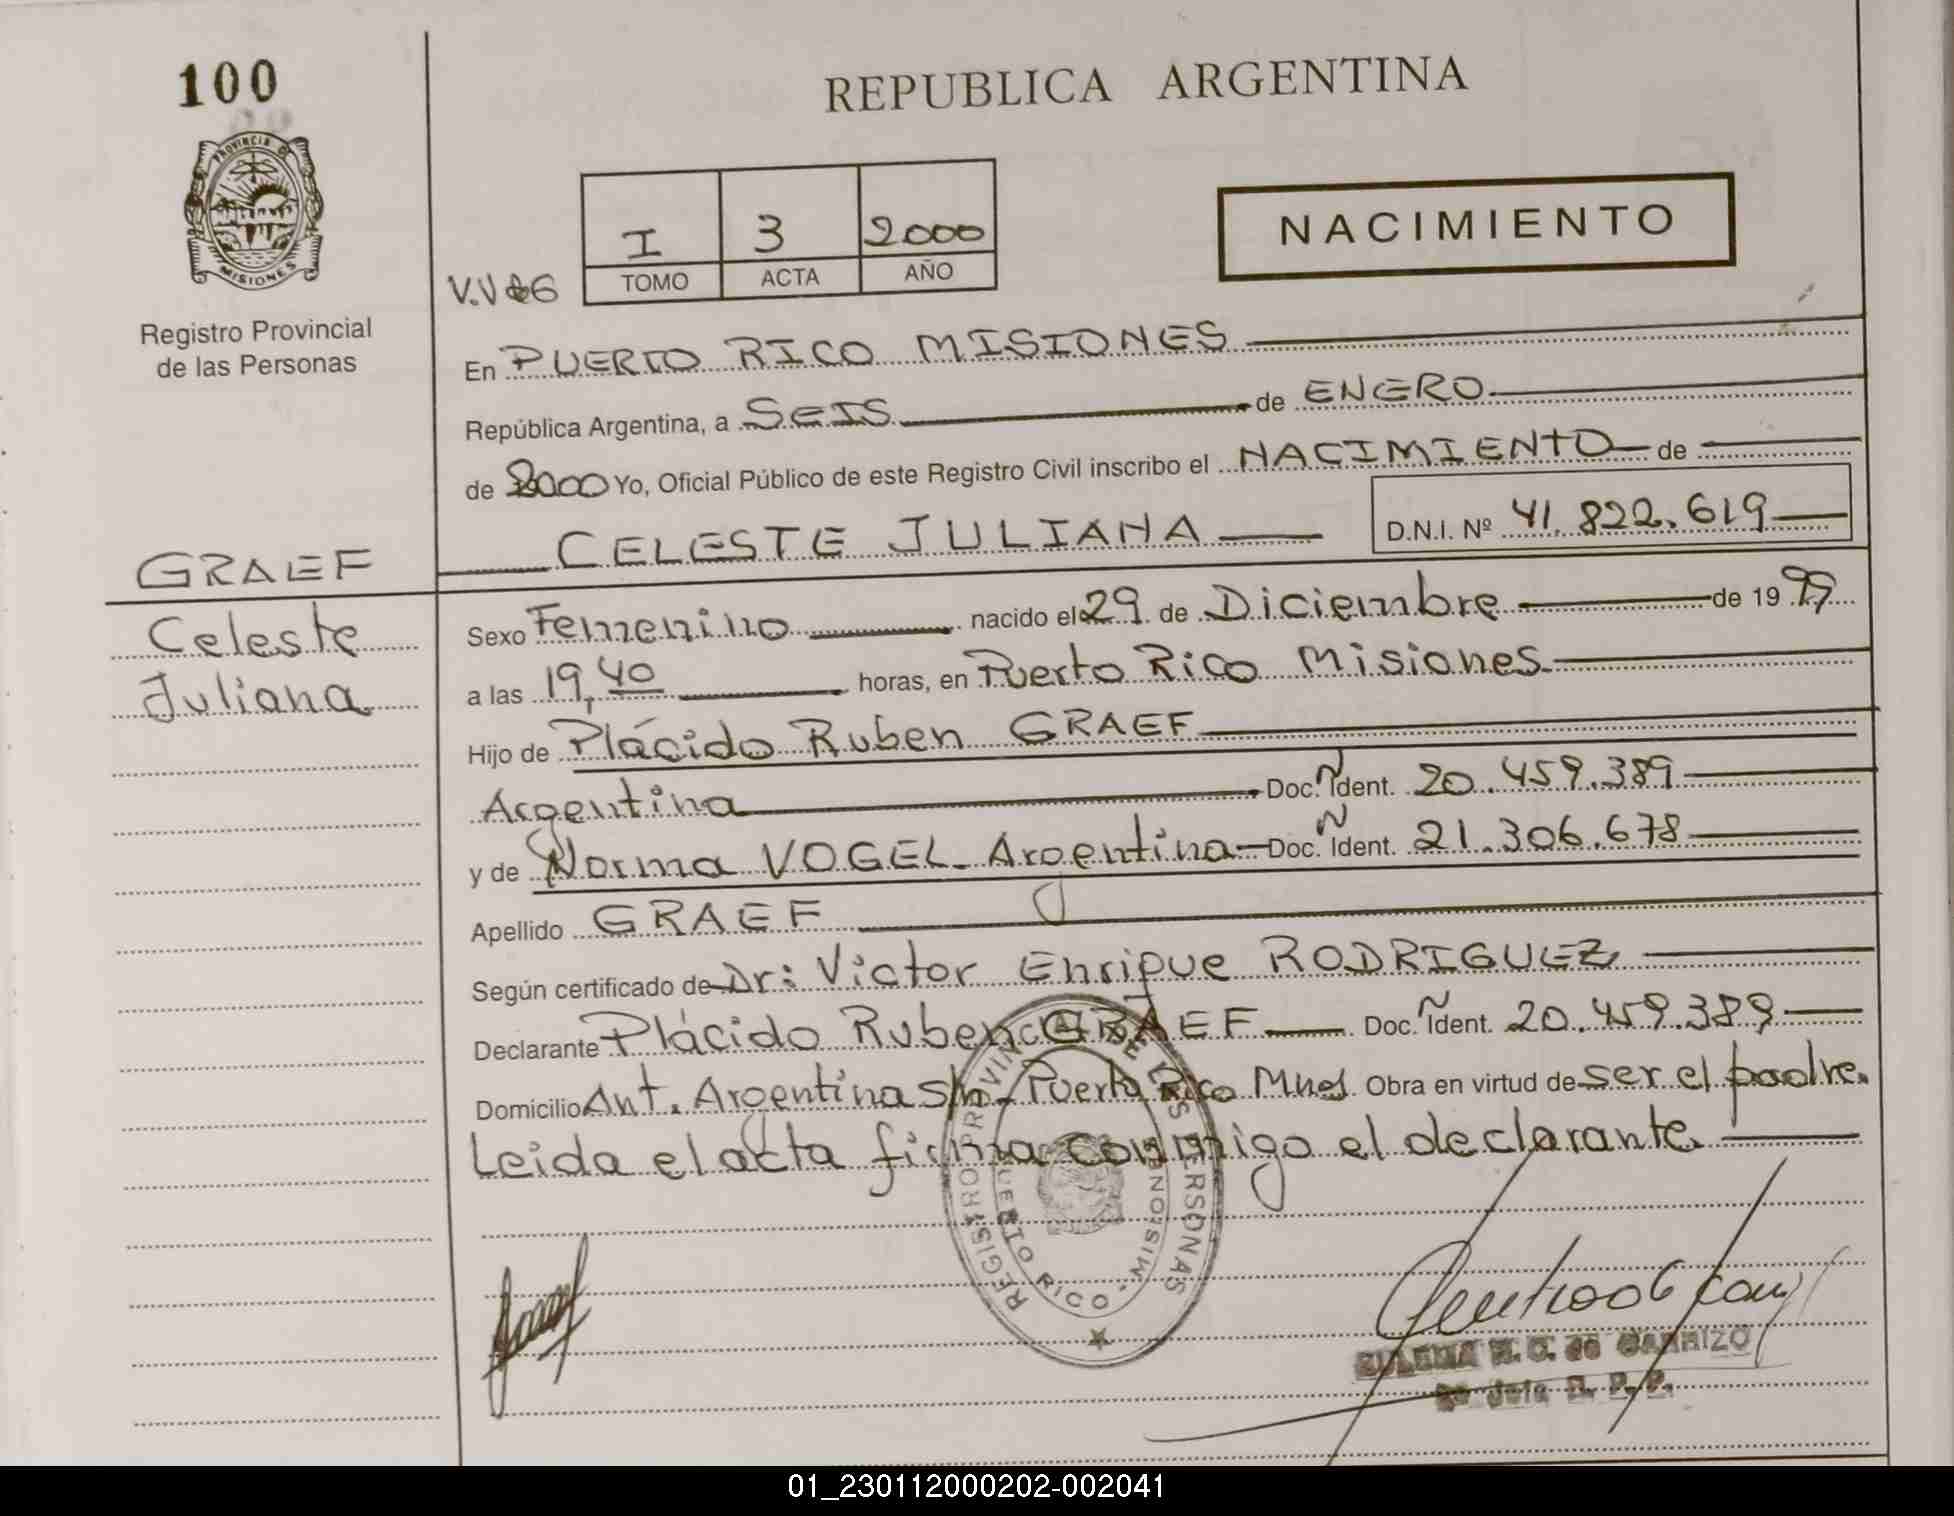 100
REPUBLICA ARGENTINA
PROVINCIA DE
MISIONES
Registro Provincial
de las Personas
I 3 2000
TOMO ACTA AÑO
NACIMIENTO
En PUERTO RICO MISIONES
República Argentina, a SEIS de ENERO
de 2000 Yo, Oficial Público de este Registro Civil inscribo el NACIMIENTO de
CELESTE JULIANA D.N.I. Nº 41.822.619
GRAEF
Celeste
Juliana
Sexo Femenino nacido el 29 de Diciembre de 1999
a las 19,40 horas, en Puerto Rico Misiones
Hijo de Plácido Ruben GRAEF
Argentina Doc. Ident. 20.459.389
y de Norma VOGEL - Argentina Doc. Ident. 21.306.678
Apellido GRAEF
Según certificado de Dr: Victor Enrique RODRIGUEZ
Declarante Plácido Ruben GRAEF Doc. Ident. 20.459.389
Domicilio Ant. Argentina s/n - Puerto Rico Mnes Obra en virtud de ser el padre.
Leida el acta firma conmigo el declarante
REGISTRO PROVINCIAL DE LAS PERSONAS
PUERTO RICO - MISIONES
H. C. de CARRIZO
Jefe R. P. P.
01_230112000202-002041